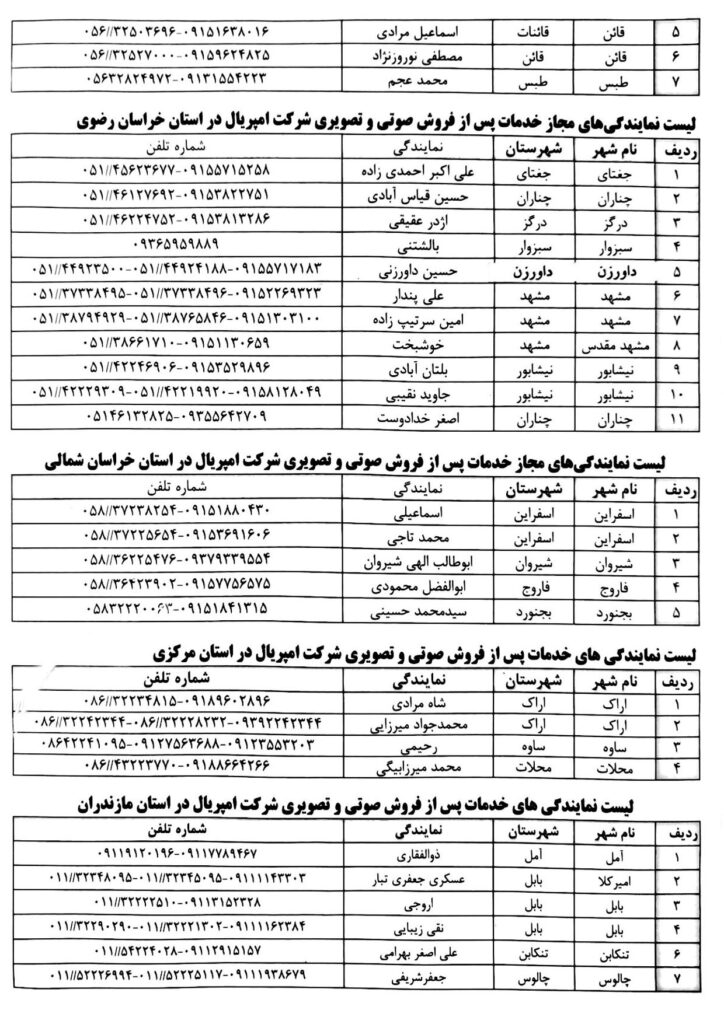 ۵ قائن قائنات اسماعیل مرادی ۰۵۶//۳۲۵۰۳۶۹۶-۰۹۱۵۱۶۳۸۰۱۶
۶ قائن قائن مصطفی نوروزنژاد ۰۵۶//۳۲۵۲۷۰۰۰-۰۹۱۵۹۶۲۴۸۲۵
۷ طبس طبس محمد عجم ۰۵۶۳۲۸۲۴۹۷۲-۰۹۱۳۱۵۵۴۲۲۳
لیست نمایندگی‌های مجاز خدمات پس از فروش صوتی و تصویری شرکت امپریال در استان خراسان رضوی
ردیف نام شهر شهرستان نمایندگی شماره تلفن
۱ جغتای جغتای علی اکبر احمدی زاده ۰۵۱//۴۵۶۲۳۶۷۷-۰۹۱۵۵۷۱۵۲۵۸
۲ چناران چناران حسین قیاس آبادی ۰۵۱//۴۶۱۲۷۶۹۲-۰۹۱۵۳۸۲۲۷۵۱
۳ درگز درگز اژدر عقیقی ۰۵۱//۴۶۲۲۴۷۵۲-۰۹۱۵۳۸۱۳۲۸۶
۴ سبزوار سبزوار بالشتنی ۰۹۳۶۵۹۵۹۸۸۹
۵ داورزن داورزن حسین داورزنی ۰۵۱//۴۴۹۲۳۵۰۰-۰۵۱//۴۴۹۲۴۱۸۸-۰۹۱۵۵۷۱۷۱۸۳
۶ مشهد مشهد علی پندار ۰۵۱//۳۷۳۳۸۴۹۵-۰۵۱//۳۷۳۳۸۴۹۶-۰۹۱۵۲۲۶۹۳۲۳
۷ مشهد مشهد امین سرتیپ زاده ۰۵۱//۳۸۷۹۴۹۲۹-۰۵۱//۳۸۷۶۵۸۴۶-۰۹۱۵۱۳۰۳۱۰۰
۸ مشهد مقدس مشهد خوشبخت ۰۵۱//۳۸۶۶۱۷۱۰-۰۹۱۵۱۱۳۰۶۵۹
۹ نیشابور نیشابور بلتان آبادی ۰۵۱//۴۲۲۴۶۹۰۶-۰۹۱۵۳۵۲۹۸۹۶
۱۰ نیشابور نیشابور جاوید نقیبی ۰۵۱//۴۲۲۲۹۳۰۹-۰۵۱//۴۲۲۱۹۹۲۰-۰۹۱۵۸۱۲۸۰۴۹
۱۱ چناران چناران اصغر خدادوست ۰۵۱۴۶۱۳۲۸۲۵-۰۹۳۵۵۶۴۲۷۰۹
لیست نمایندگی‌های مجاز خدمات پس از فروش صوتی و تصویری شرکت امپریال در استان خراسان شمالی
ردیف نام شهر شهرستان نمایندگی شماره تلفن
۱ اسفراین اسفراین اسماعیلی ۰۵۸//۳۷۲۳۸۲۵۴-۰۹۱۵۱۸۸۰۴۳۰
۲ اسفراین اسفراین محمد تاجی ۰۵۸//۳۷۲۲۵۶۵۴-۰۹۱۵۳۶۹۱۶۰۶
۳ شیروان شیروان ابوطالب الهی شیروان ۰۵۸//۳۶۲۲۵۴۷۶-۰۹۳۷۹۳۳۹۵۵۴
۴ فاروج فاروج ابوالفضل محمودی ۰۵۸//۳۶۴۲۳۹۰۲-۰۹۱۵۷۷۵۶۵۷۵
۵ بجنورد بجنورد سیدمحمد حسینی ۰۵۸۳۲۲۲۰۰۶۳-۰۹۱۵۱۸۴۱۳۱۵
لیست نمایندگی های خدمات پس از فروش صوتی و تصویری شرکت امپریال در استان مرکزی
ردیف نام شهر شهرستان نمایندگی شماره تلفن
۱ اراک اراک شاه مرادی ۰۸۶//۳۲۲۳۴۸۱۵-۰۹۱۸۹۶۰۲۸۹۶
۲ اراک اراک محمدجواد میرزایی ۰۸۶//۳۲۲۴۲۳۴۴-۰۸۶//۳۲۲۲۸۲۳۲-۰۹۳۹۲۲۴۲۳۴۴
۳ ساوه ساوه رحیمی ۰۸۶۴۲۲۴۱۰۹۵-۰۹۱۲۷۵۶۳۶۸۸-۰۹۱۲۳۵۵۳۲۰۳
۴ محلات محلات محمد میرزابیگی ۰۸۶//۴۳۲۲۳۷۷۰-۰۹۱۸۸۶۶۴۲۶۶
لیست نمایندگی های خدمات پس از فروش صوتی و تصویری شرکت امپریال در استان مازندران
ردیف نام شهر شهرستان نمایندگی شماره تلفن
۱ آمل آمل ذوالفقاری ۰۹۱۱۹۱۲۰۱۹۶-۰۹۱۱۷۷۸۹۴۶۷
۲ امیرکلا بابل عسکری جعفری تبار ۰۱۱//۳۲۳۴۸۰۹۵-۰۱۱//۳۲۳۴۵۰۹۵-۰۹۱۱۱۱۴۳۳۰۳
۳ بابل بابل اروجی ۰۱۱//۳۲۲۲۲۵۱۰-۰۹۱۱۳۱۵۲۳۲۸
۴ بابل بابل نقی زیبایی ۰۱۱//۳۲۲۹۰۲۹۰-۰۱۱//۳۲۲۲۱۳۰۲-۰۹۱۱۱۱۶۲۳۸۴
۶ تنکابن تنکابن علی اصغر بهرامی ۰۱۱//۵۴۲۲۴۰۲۸-۰۹۱۱۲۹۱۵۱۵۷
۷ چالوس چالوس جعفرشریفی ۰۱۱//۵۲۲۲۶۹۹۴-۰۱۱//۵۲۲۲۵۱۱۷-۰۹۱۱۱۹۳۸۶۷۹